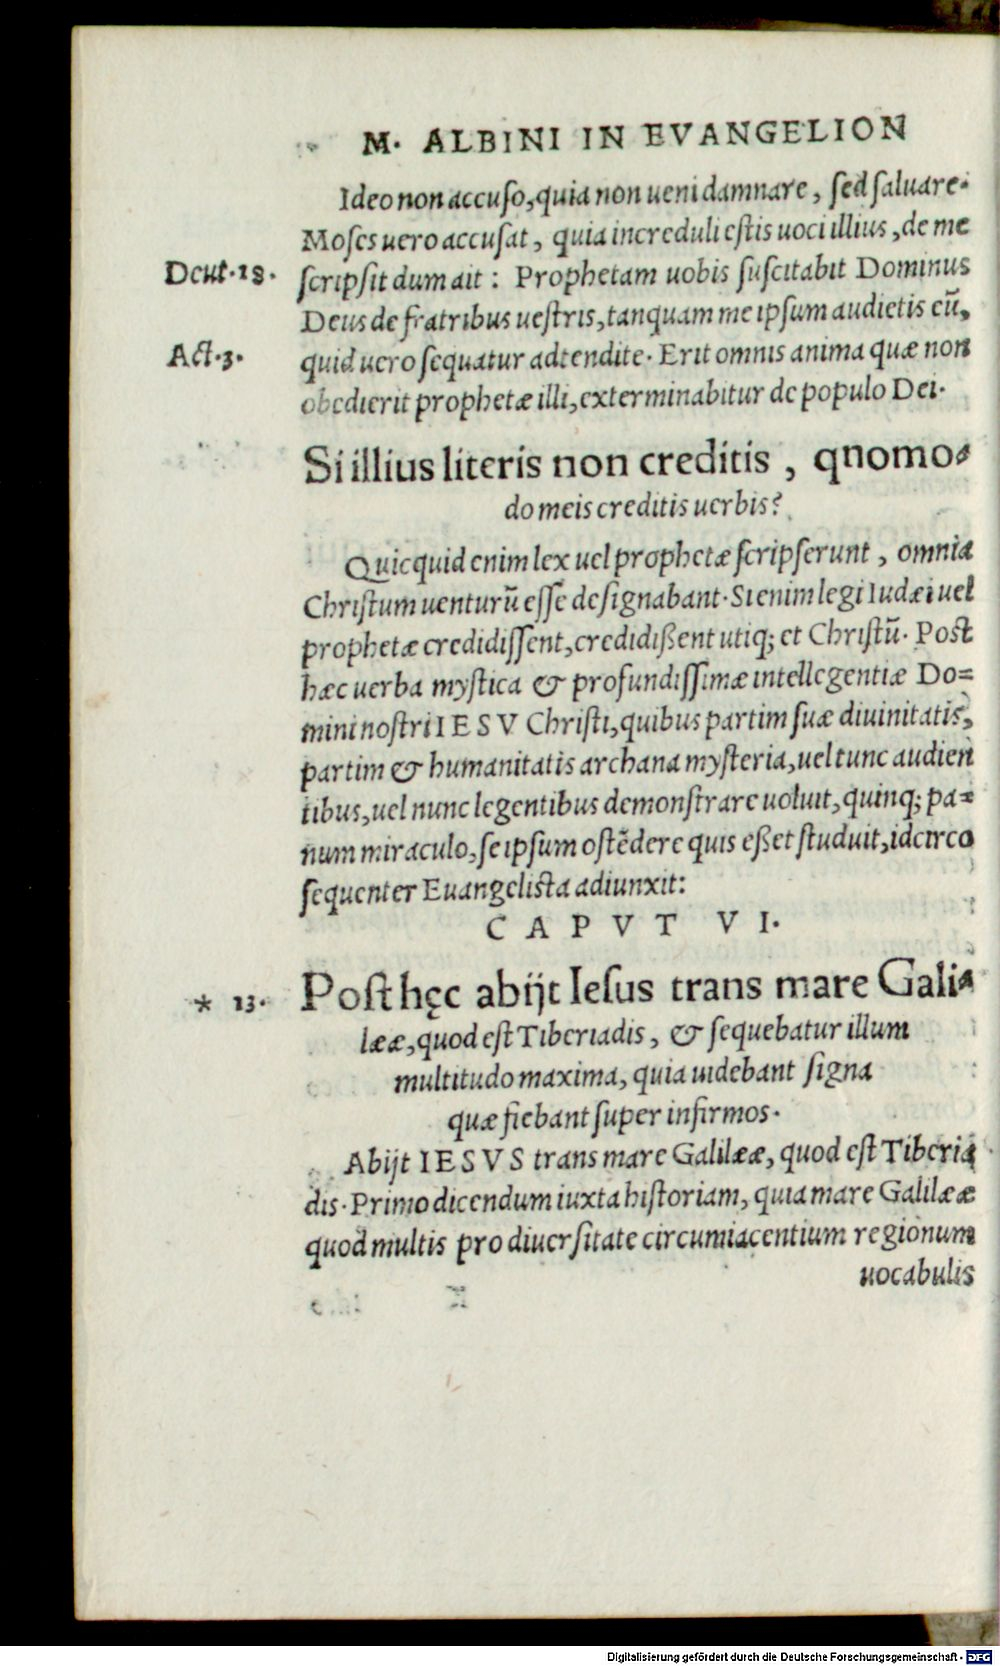 M. ALBINI IN EVANGELION
Ideo non accuso, quia non ueni damnare, sed saluare.
Moses uero accusat, quia increduli estis uoci illius, de me
Deut. 18.
scripsit dum ait: Prophetam uobis suscitabit Dominus
Deus de fratribus uestris, tanquam me ipsum audietis eū,
Act. 3.
quid uero sequatur adtendite. Erit omnis anima quæ non
obedierit prophetæ illi, exterminabitur de populo Dei.
Si illius literis non creditis, qnomo-
do meis creditis uerbis?
Quicquid enim lex uel prophetæ scripserunt, omnia
Christum uenturū esse designabant. Si enim legi Iudæi uel
prophetæ credidissent, credidißent utiq; et Christū. Post
hæc uerba mystica & profundissimæ intellegentiæ Do=
mini nostri IESV Christi, quibus partim suæ diuinitatis,
partim & humanitatis archana mysteria, uel tunc audien
tibus, uel nunc legentibus demonstrare uoluit, quinq; pa=
num miraculo, se ipsum ostēdere quis eßet studuit, idcirco
sequenter Euangelista adiunxit:
CAPVT VI.
* 13.
Post hęc abijt Iesus trans mare Gali-
lææ, quod est Tiberiadis, & sequebatur illum
multitudo maxima, quia uidebant signa
quæ fiebant super infirmos.
Abijt IESVS trans mare Galilææ, quod est Tiberia
dis. Primo dicendum iuxta historiam, quia mare Galilææ
quod multis pro diuersitate circumiacentium regionum
uocabulis
Digitalisierung gefördert durch die Deutsche Forschungsgemeinschaft - DFG